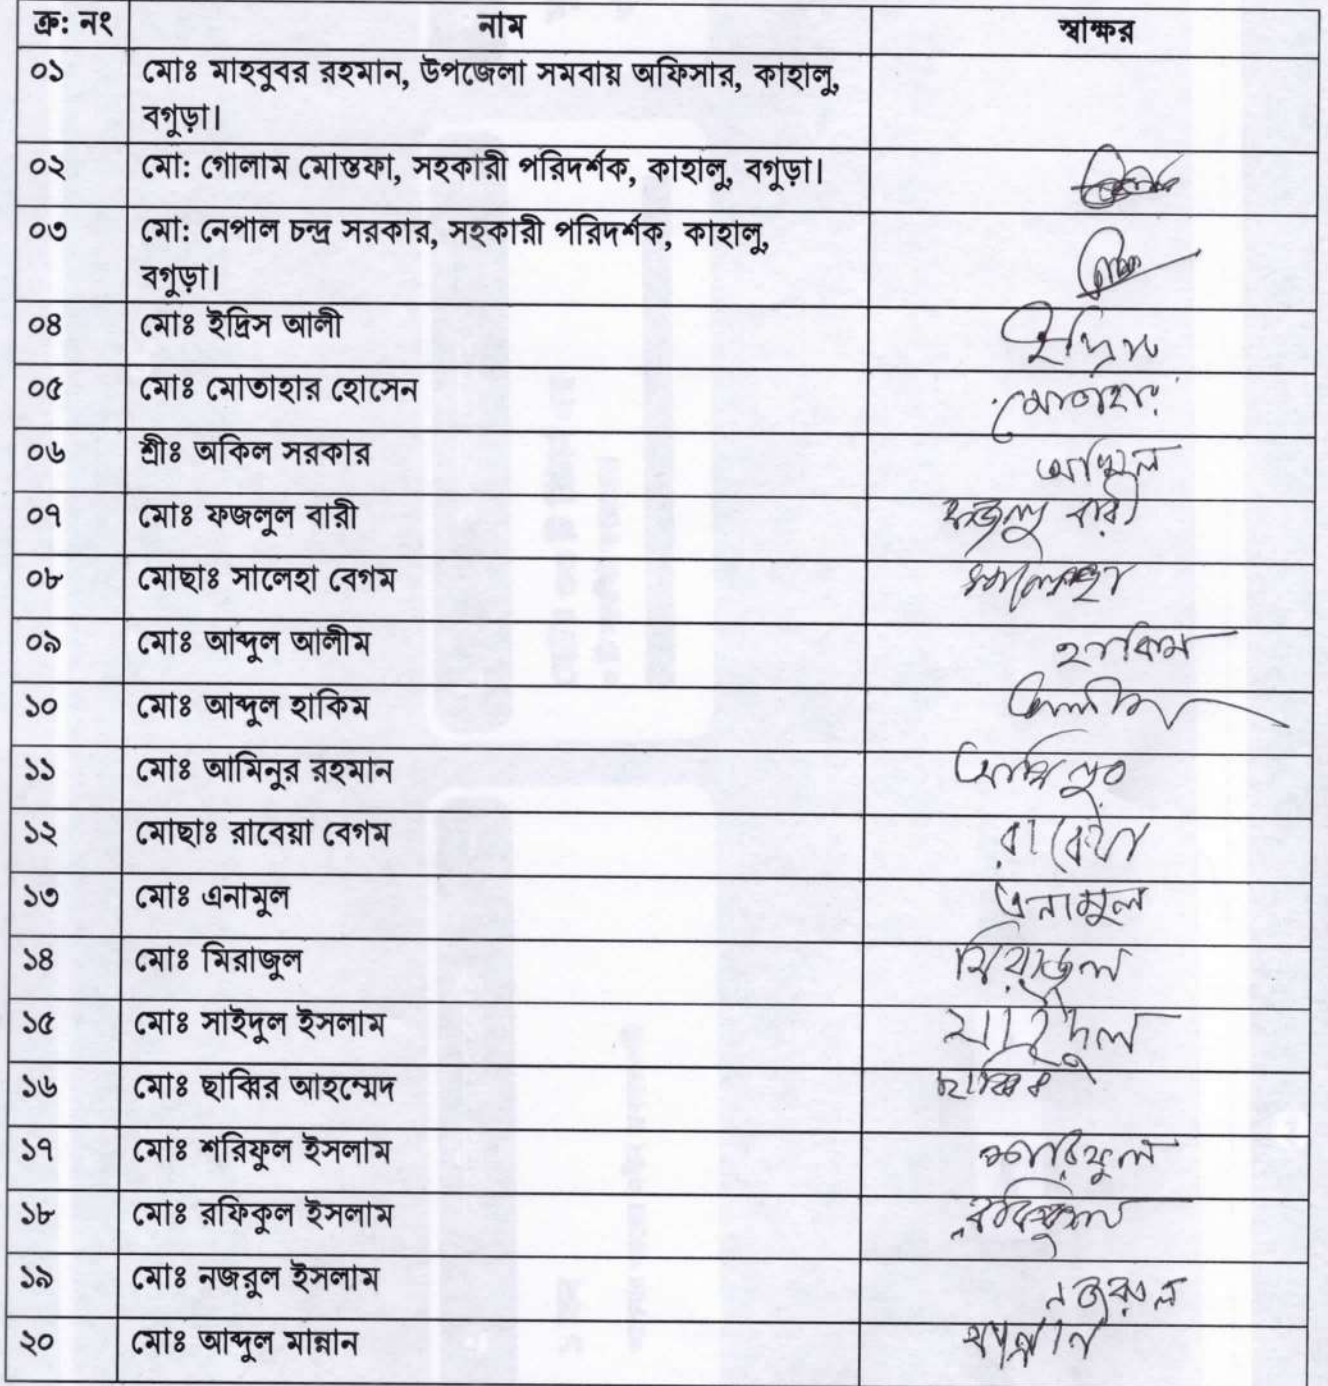 ক্র: নং নাম স্বাক্ষর
০১ মোঃ মাহবুবর রহমান, উপজেলা সমবায় অফিসার, কাহালু,
বগুড়া।
০২ মো: গোলাম মোস্তফা, সহকারী পরিদর্শক, কাহালু, বগুড়া।
০৩ মো: নেপাল চন্দ্র সরকার, সহকারী পরিদর্শক, কাহালু,
বগুড়া।
০৪ মোঃ ইদ্রিস আলী ইদ্রিস
০৫ মোঃ মোতাহার হোসেন মোতাহার
০৬ শ্রীঃ অকিল সরকার
০৭ মোঃ ফজলুল বারী ফজলু বারী
০৮ মোছাঃ সালেহা বেগম সালেহা
০৯ মোঃ আব্দুল আলীম হাকিম
১০ মোঃ আব্দুল হাকিম আলীম
১১ মোঃ আমিনুর রহমান আমিনুর
১২ মোছাঃ রাবেয়া বেগম রাবেয়া
১৩ মোঃ এনামুল এনামুল
১৪ মোঃ মিরাজুল মিরাজুল
১৫ মোঃ সাইদুল ইসলাম সাইদুল
১৬ মোঃ ছাব্বির আহম্মেদ ছাব্বির
১৭ মোঃ শরিফুল ইসলাম শরিফুল
১৮ মোঃ রফিকুল ইসলাম রফিকুল
১৯ মোঃ নজরুল ইসলাম নজরুল
২০ মোঃ আব্দুল মান্নান মান্নান